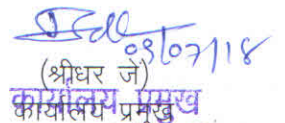 09/07/18
(श्रीधर जे)
कार्यालय प्रमुख
कार्यालय प्रमुख